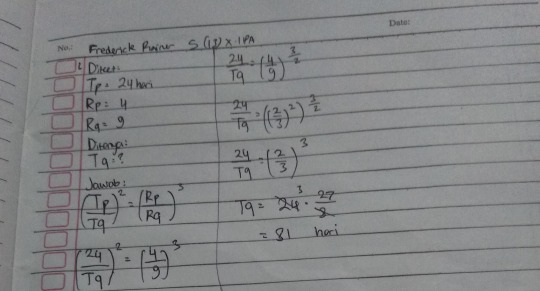 Date:
No.: Frederick S (17) X IPA
1 Diket:
Tp = 24 hari
Rp = 4
Rq = 9
Ditanya:
Tq = ?
Jawab:
(Tp/Tq)² = (Rp/Rq)³
(24/Tq)² = (4/9)³
24/Tq = (4/9)^(3/2)
24/Tq = ((2/3)²)^(3/2)
24/Tq = (2/3)³
Tq = 24 3 · 27/8
= 81 hari